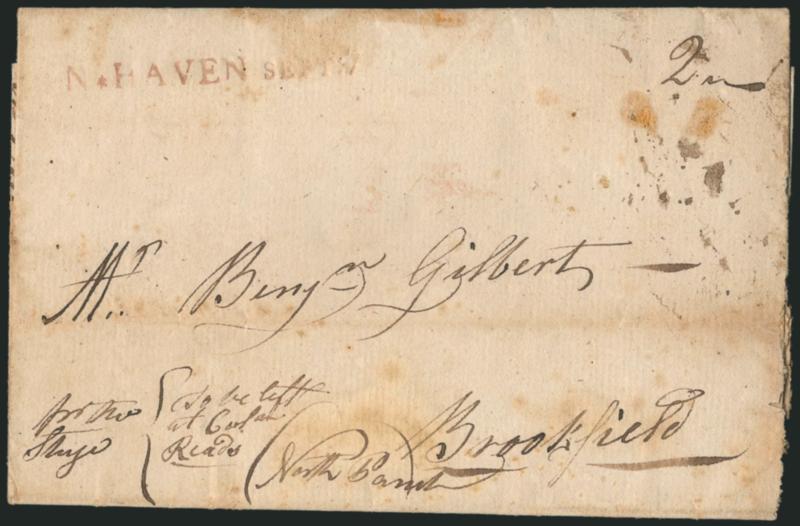 N*HAVEN SEPT
2
Mr. Benjm Gilbert
pr the
Stage
To be left
at
Reads
North Parish
Brookfield